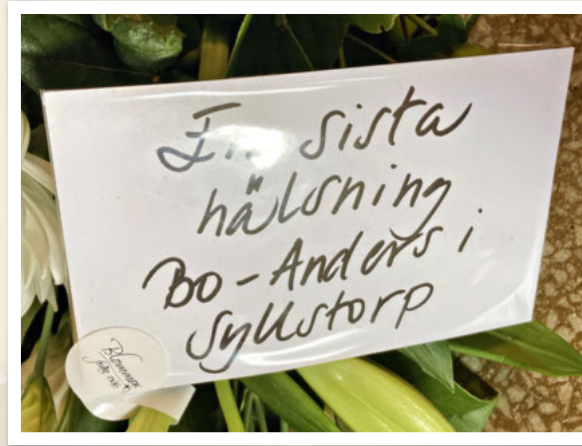 En sista
hälsning
Bo-Anders i
Syllstorp